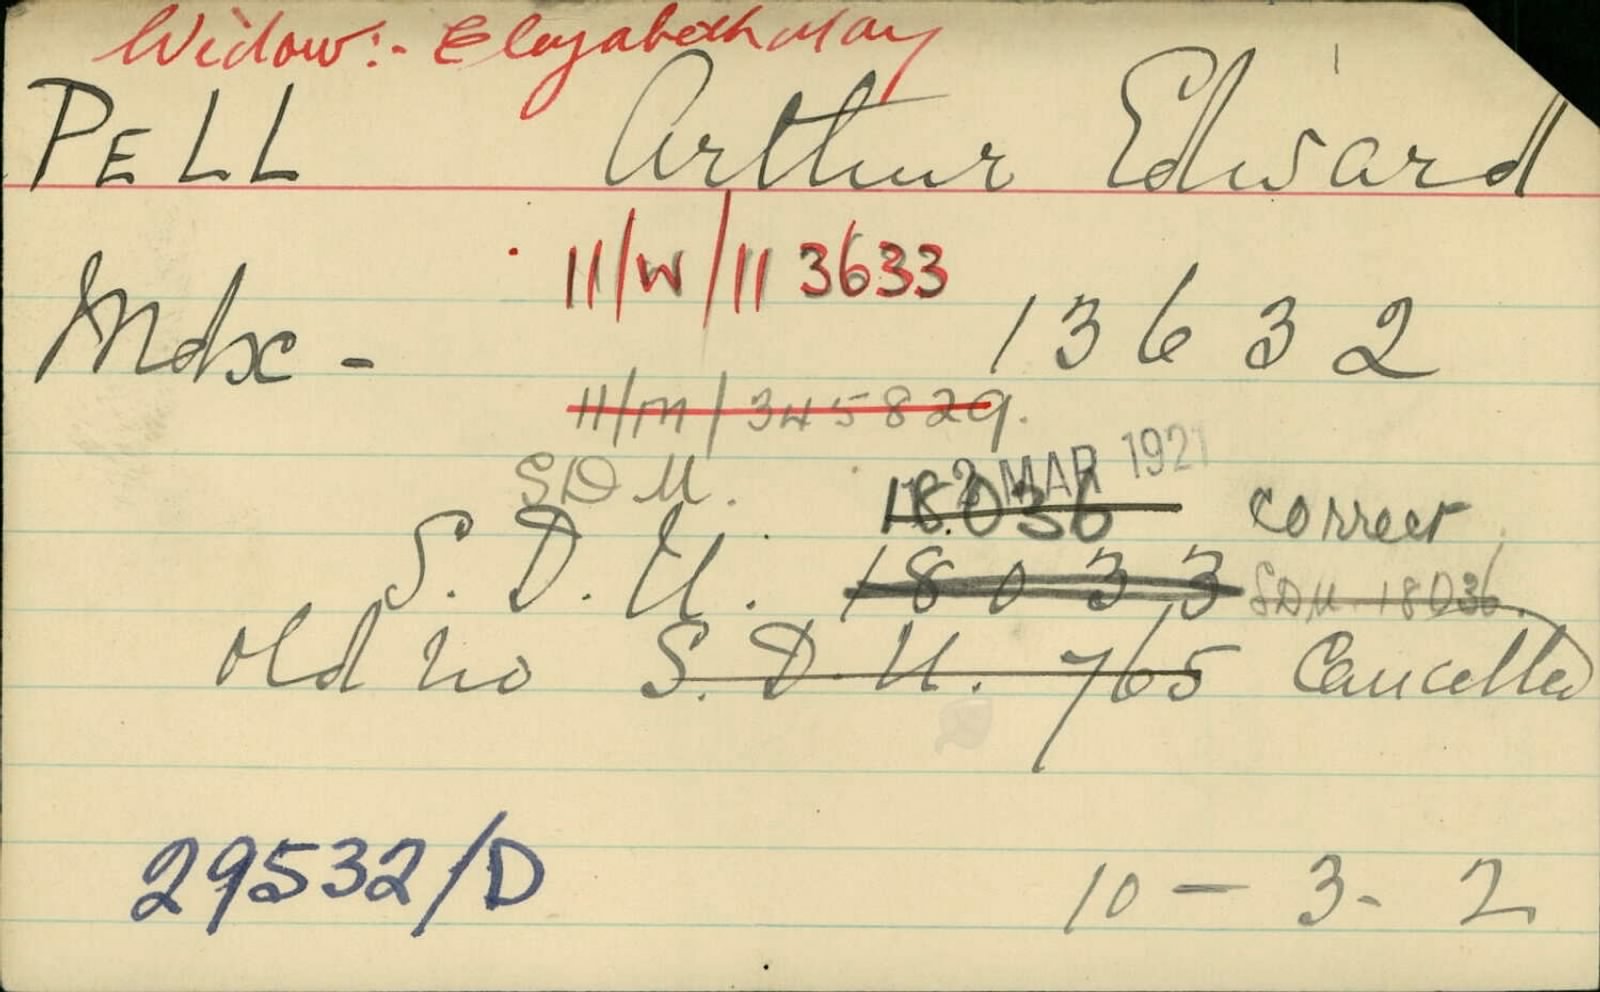 Widow:- Elizabeth May
PELL Arthur Edward
11/W/11 3633
Mdx - 13632
11/M/345829.
S D U. 18036 correct
2 MAR 1921
S. D. U. 18033 SDU 18036.
Old no S. D. U. 765 Cancelled
29532/D 10 - 3 - 2